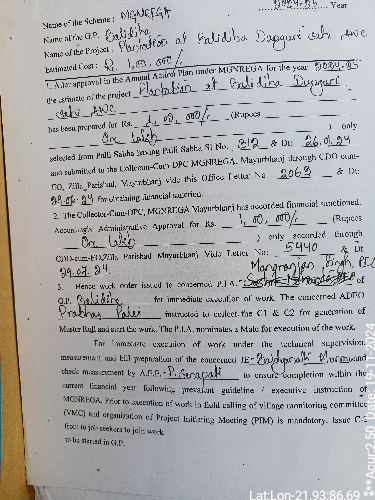 2024-25 Year
Name of the Scheme : MGNREGA
Name of the G.P. Balidiha
Name of the Project : Plantation at Balidiha Dugguri sahi AWC
Estimated Cost : Rs. 1,00,000/-
1. After approval in the Annual Action Plan under MGNREGA for the year 2024-25
the estimate of the project Plantation at Balidiha Duguri
sahi AWC
has been prepared for Rs. 1,00,000/- (Rupees
One Lakh ) only
selected from Palli Sabha having Palli Sabha Sl No. 812 & Dt: 26.01.24
and submitted to the Collector-Cum-DPC MGNREGA, Mayurbhanj through CDO cum-
EO, Zilla Parishad, Mayurbhanj vide this Office Letter No. 2063 & Dt:
29.06.24 for obtaining financial sanction.
2. The Collector-Cum-DPC, MGNREGA Mayurbhanj has recorded financial sanctioned.
Accordingly Administrative Approval for Rs. 1,00,000/- (Rupees
One Lakh ) only accorded through
CDO-cum-EO, Zilla Parishad Mayurbhanj Vide Letter No: 5440 & Dt
29.07.24. Manoranjan Singh, P.I.A
3. Hence work order issued to concerned P.I.A.- of
G.P. Balidiha for immediate execution of work. The concerned ADEO
Prabhas instructed to collect the C1 & C2 for generation of
Muster Roll and start the work. The P.I.A. nominates a Mate for execution of the work.
For immediate execution of work under the technical supervision,
measurement and bill preparation of the concerned JE- Baidyanath Murmu and
check measurement by A.E.E.- P. Senapati to ensure completion within the
current financial year following prevalent guideline / executive instruction of
MGNREGA. Prior to execution of work in field calling of village monitoring committee
(VMC) and organization of Project Initiating Meeting (PIM) is mandatory. Issue C-2
from to job seekers to join work
to be started in G.P.
Lat:Lon-21.93:86.69